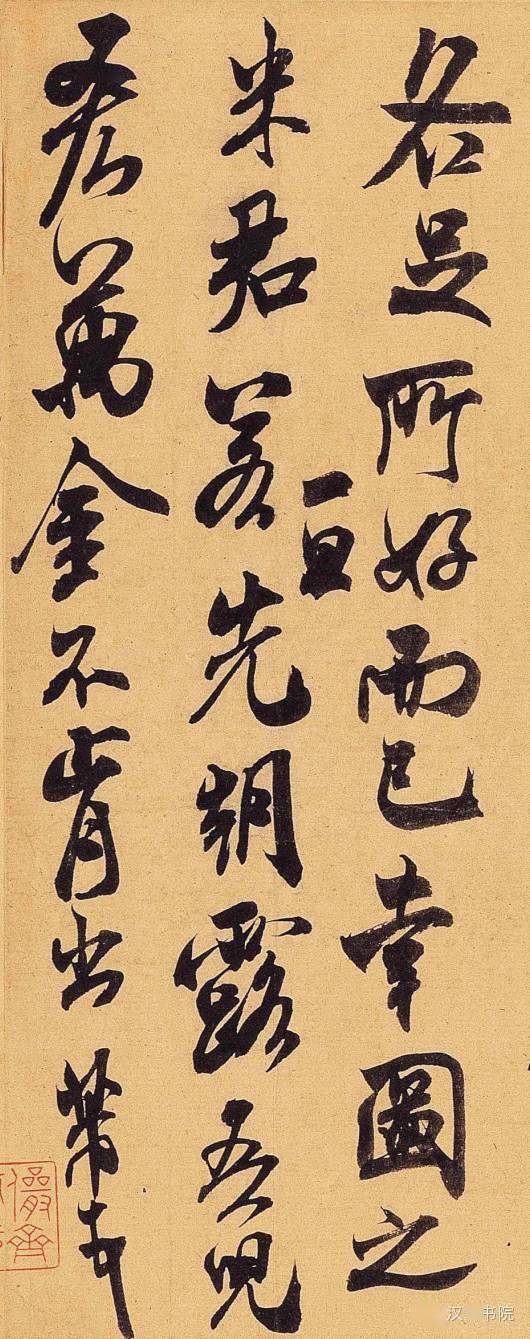 各足所好而已幸圖之
米君若一旦先朝露吾兒
吝萬金不肯出 芾
儼齋
汉 书院